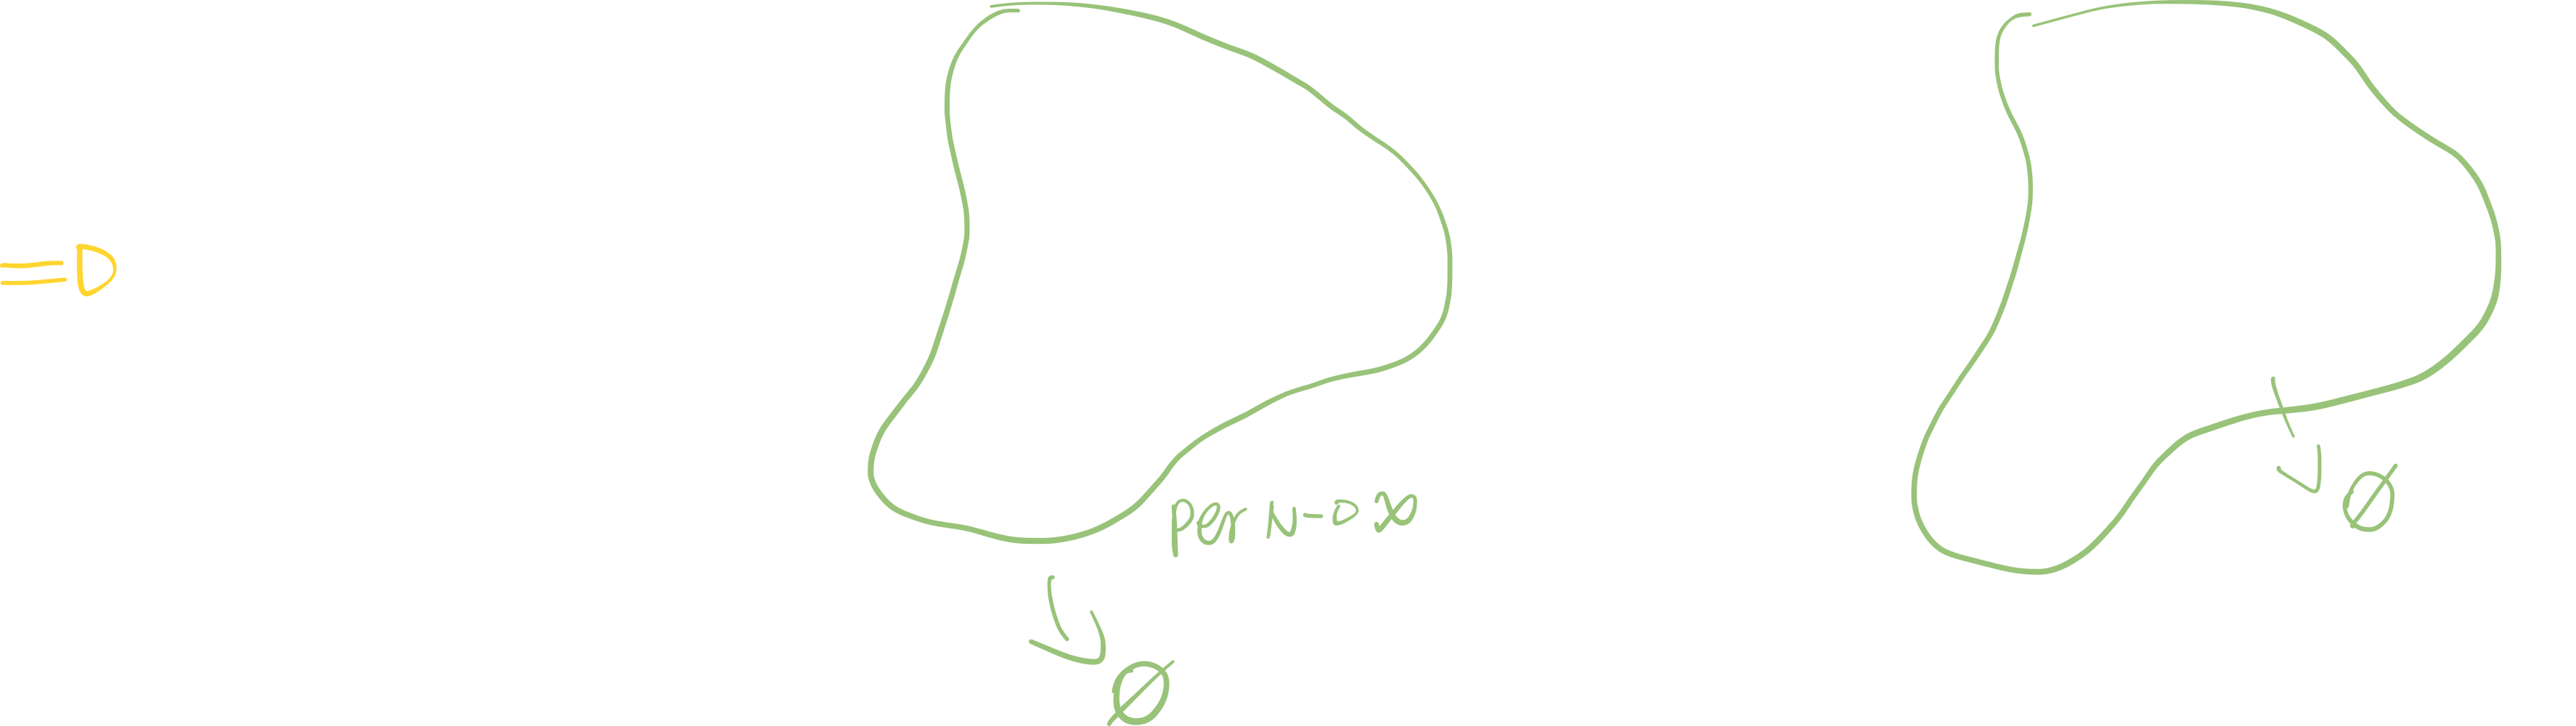 ⇒
per n→∞
↓
∅
↘
∅